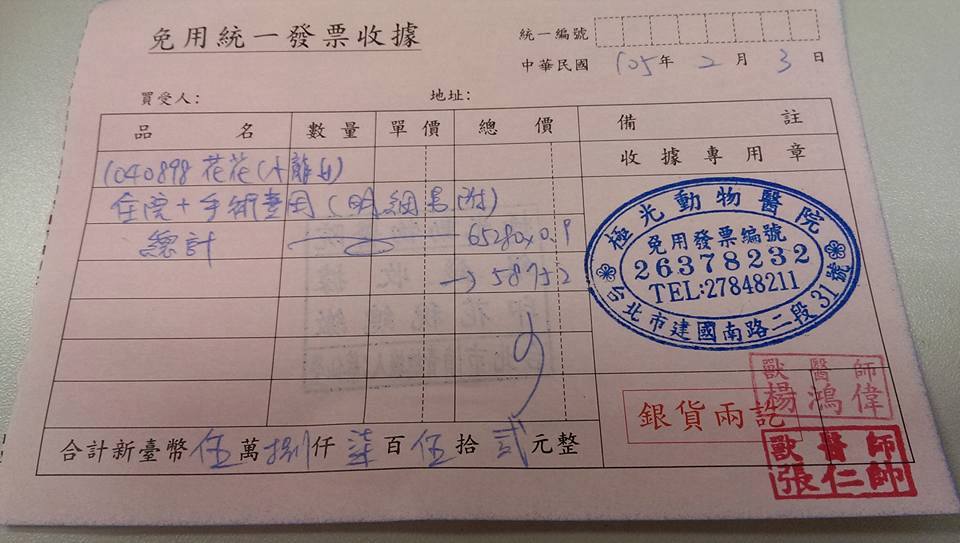 免用統一發票收據
統一編號
中華民國 105 年 2 月 3 日
買受人: 地址:
品名 數量 單價 總價 備註
收據專用章
1040898 花花(小龍女)
住院+手術費用(明細另附)
總計 65280x0.9
→58752
極光動物醫院
免用發票編號
26378232
TEL:27848211
台北市建國南路二段31號
獸醫師
楊鴻偉
銀貨兩訖
獸醫師
張仁帥
合計新臺幣 伍 萬 捌 仟 柒 百 伍 拾 貳 元整